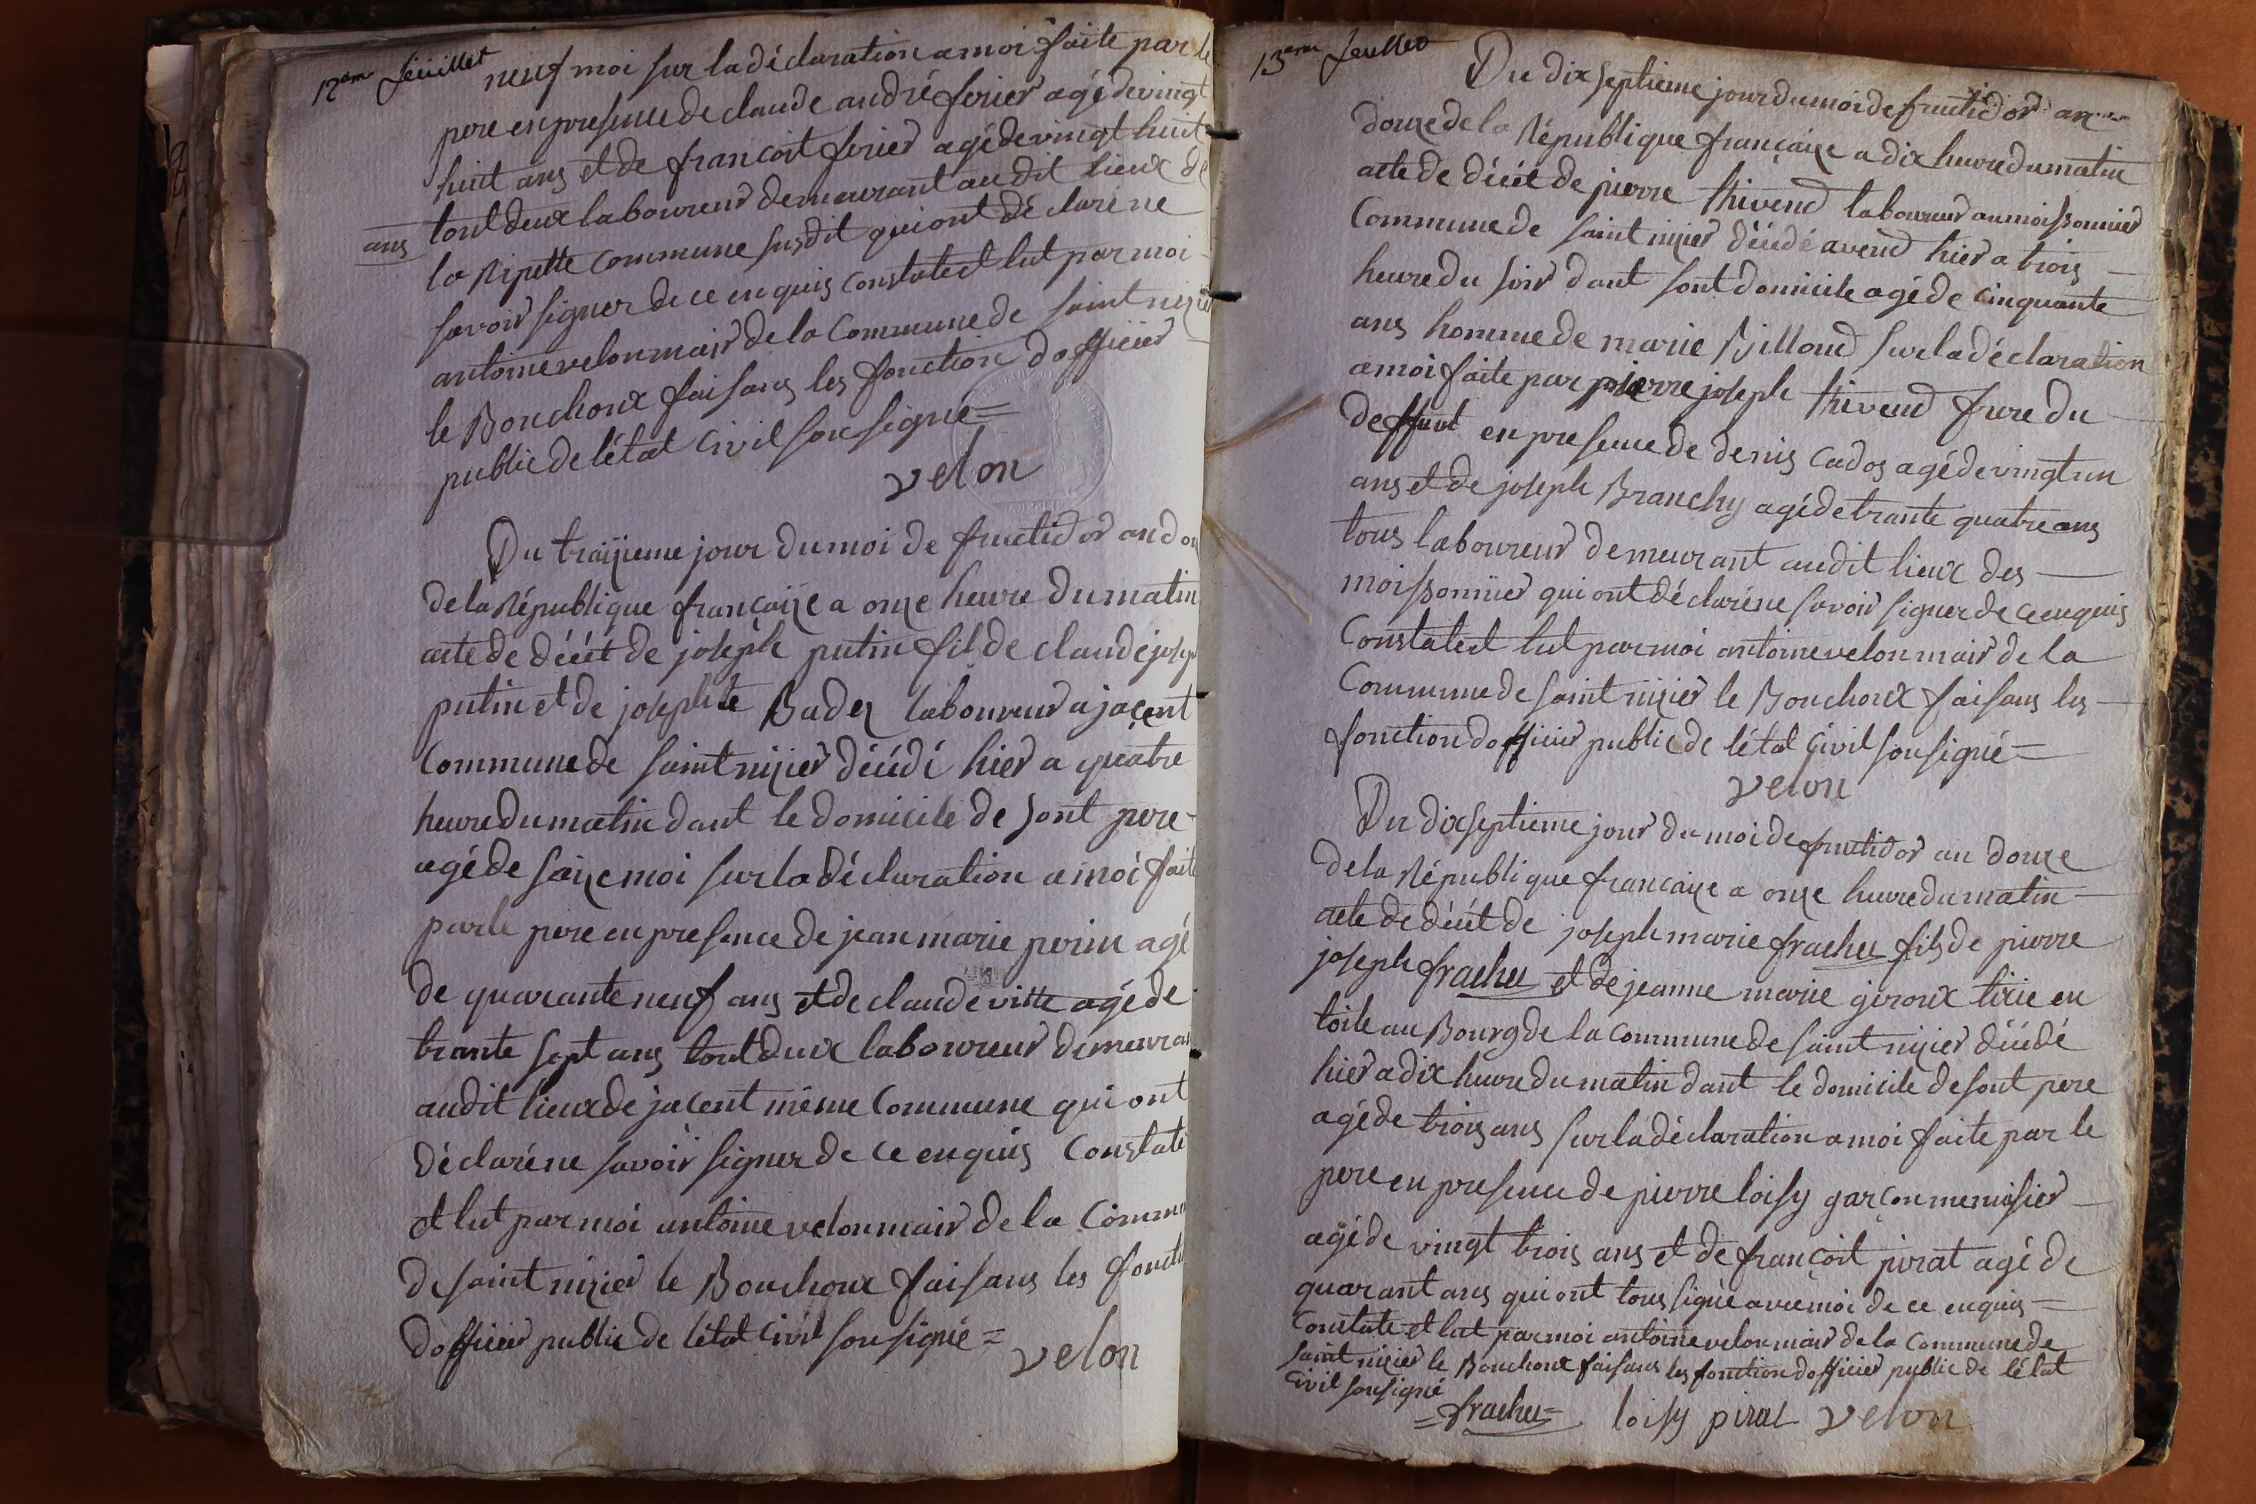 12eme feuillet
neuf moi sur la déclaration a moi faite par le
pere en presence de claude andré ferier agé de vingt
huit ans et de francoit ferier agé de vingt huit
ans
tout deux laboureur demeurant au dit lieux de
la Ripette commune susdit qui ont déclaré ne
savoir signer de ce enquis constatest lut par moi
antoine velon mair de la Commune de saint nizier
le Bouchoux faisans les fonction d officier
public de létat Civil sousigné =
velon
Du traizieme jour du moi de fructidor an dou
de la République françaize a onze heure du matin
acte de décét de joseph putin fil de claude joseph
putin et de josephte Badez laboureur a jaçent
Commune de saint nizier décédé hier a quatre
heure du matin dant le domicile de sont pere
agé de saize moi sur la déclaration a moi faite
par le pere en presence de jean marie perin agé
de quarante neuf ans et de claude vitte agé de
trante sept ans tout deux laboureur demeuran
au dit lieux de jacent même Commune qui ont
déclaré ne savoir signer de ce enquis Constaté
et lut par moi antoine velon mair de la Commu
de saint nizier le Bouchoux faisans les foncti
d officier public de létat Civil sousigné =
velon
13eme feuillet
Du dix septieme jour du moi de fructidor an
douze de la République françaize a dix heure du matin
acte de décét de pierre thivend laboureur au moissonnier
Commune de saint nizier décédé avend hier a trois
heure du soir dant sont domicile agé de cinquante
ans homme de marie Billoud sur la déclaration
a moi faite par pierre joseph thivend frere du
deffunt en presence de denis cados agé de vingt un
ans et de joseph Branchy agé de trante quatre ans
tous laboureur demeurant audit lieux des
moissonnier qui ont déclaré ne savoir signer de ce enquis
Constatest lut par moi antoine velon mair de la
Commune de saint nizier le Bouchoux faisans les
fonction d officier public de létat Civil sousigné =
velon
Du dix septieme jour du moi de fructidor an douze
de la République françaize a onze heure du matin
acte de décét de joseph marie frachet fils de pierre
joseph frachet et de jeanne marie giroux tixie en
toile au Bourg de la commune de saint nizier décédé
hier a dix heure du matin dant le domicile de sont pere
agé de trois ans sur la déclaration a moi faite par le
pere en presence de pierre loisy garçon menuisier
agé de vingt trois ans et de françoit pirat agé de
quarant ans qui ont tous signé avec moi de ce enquis =
Constate et lut par moi antoine velon mair de la commune de
saint nizier le Bouchoux faisans les fonction d officier public de létat
Civil sousigné
= frachet = loisy pirat velon